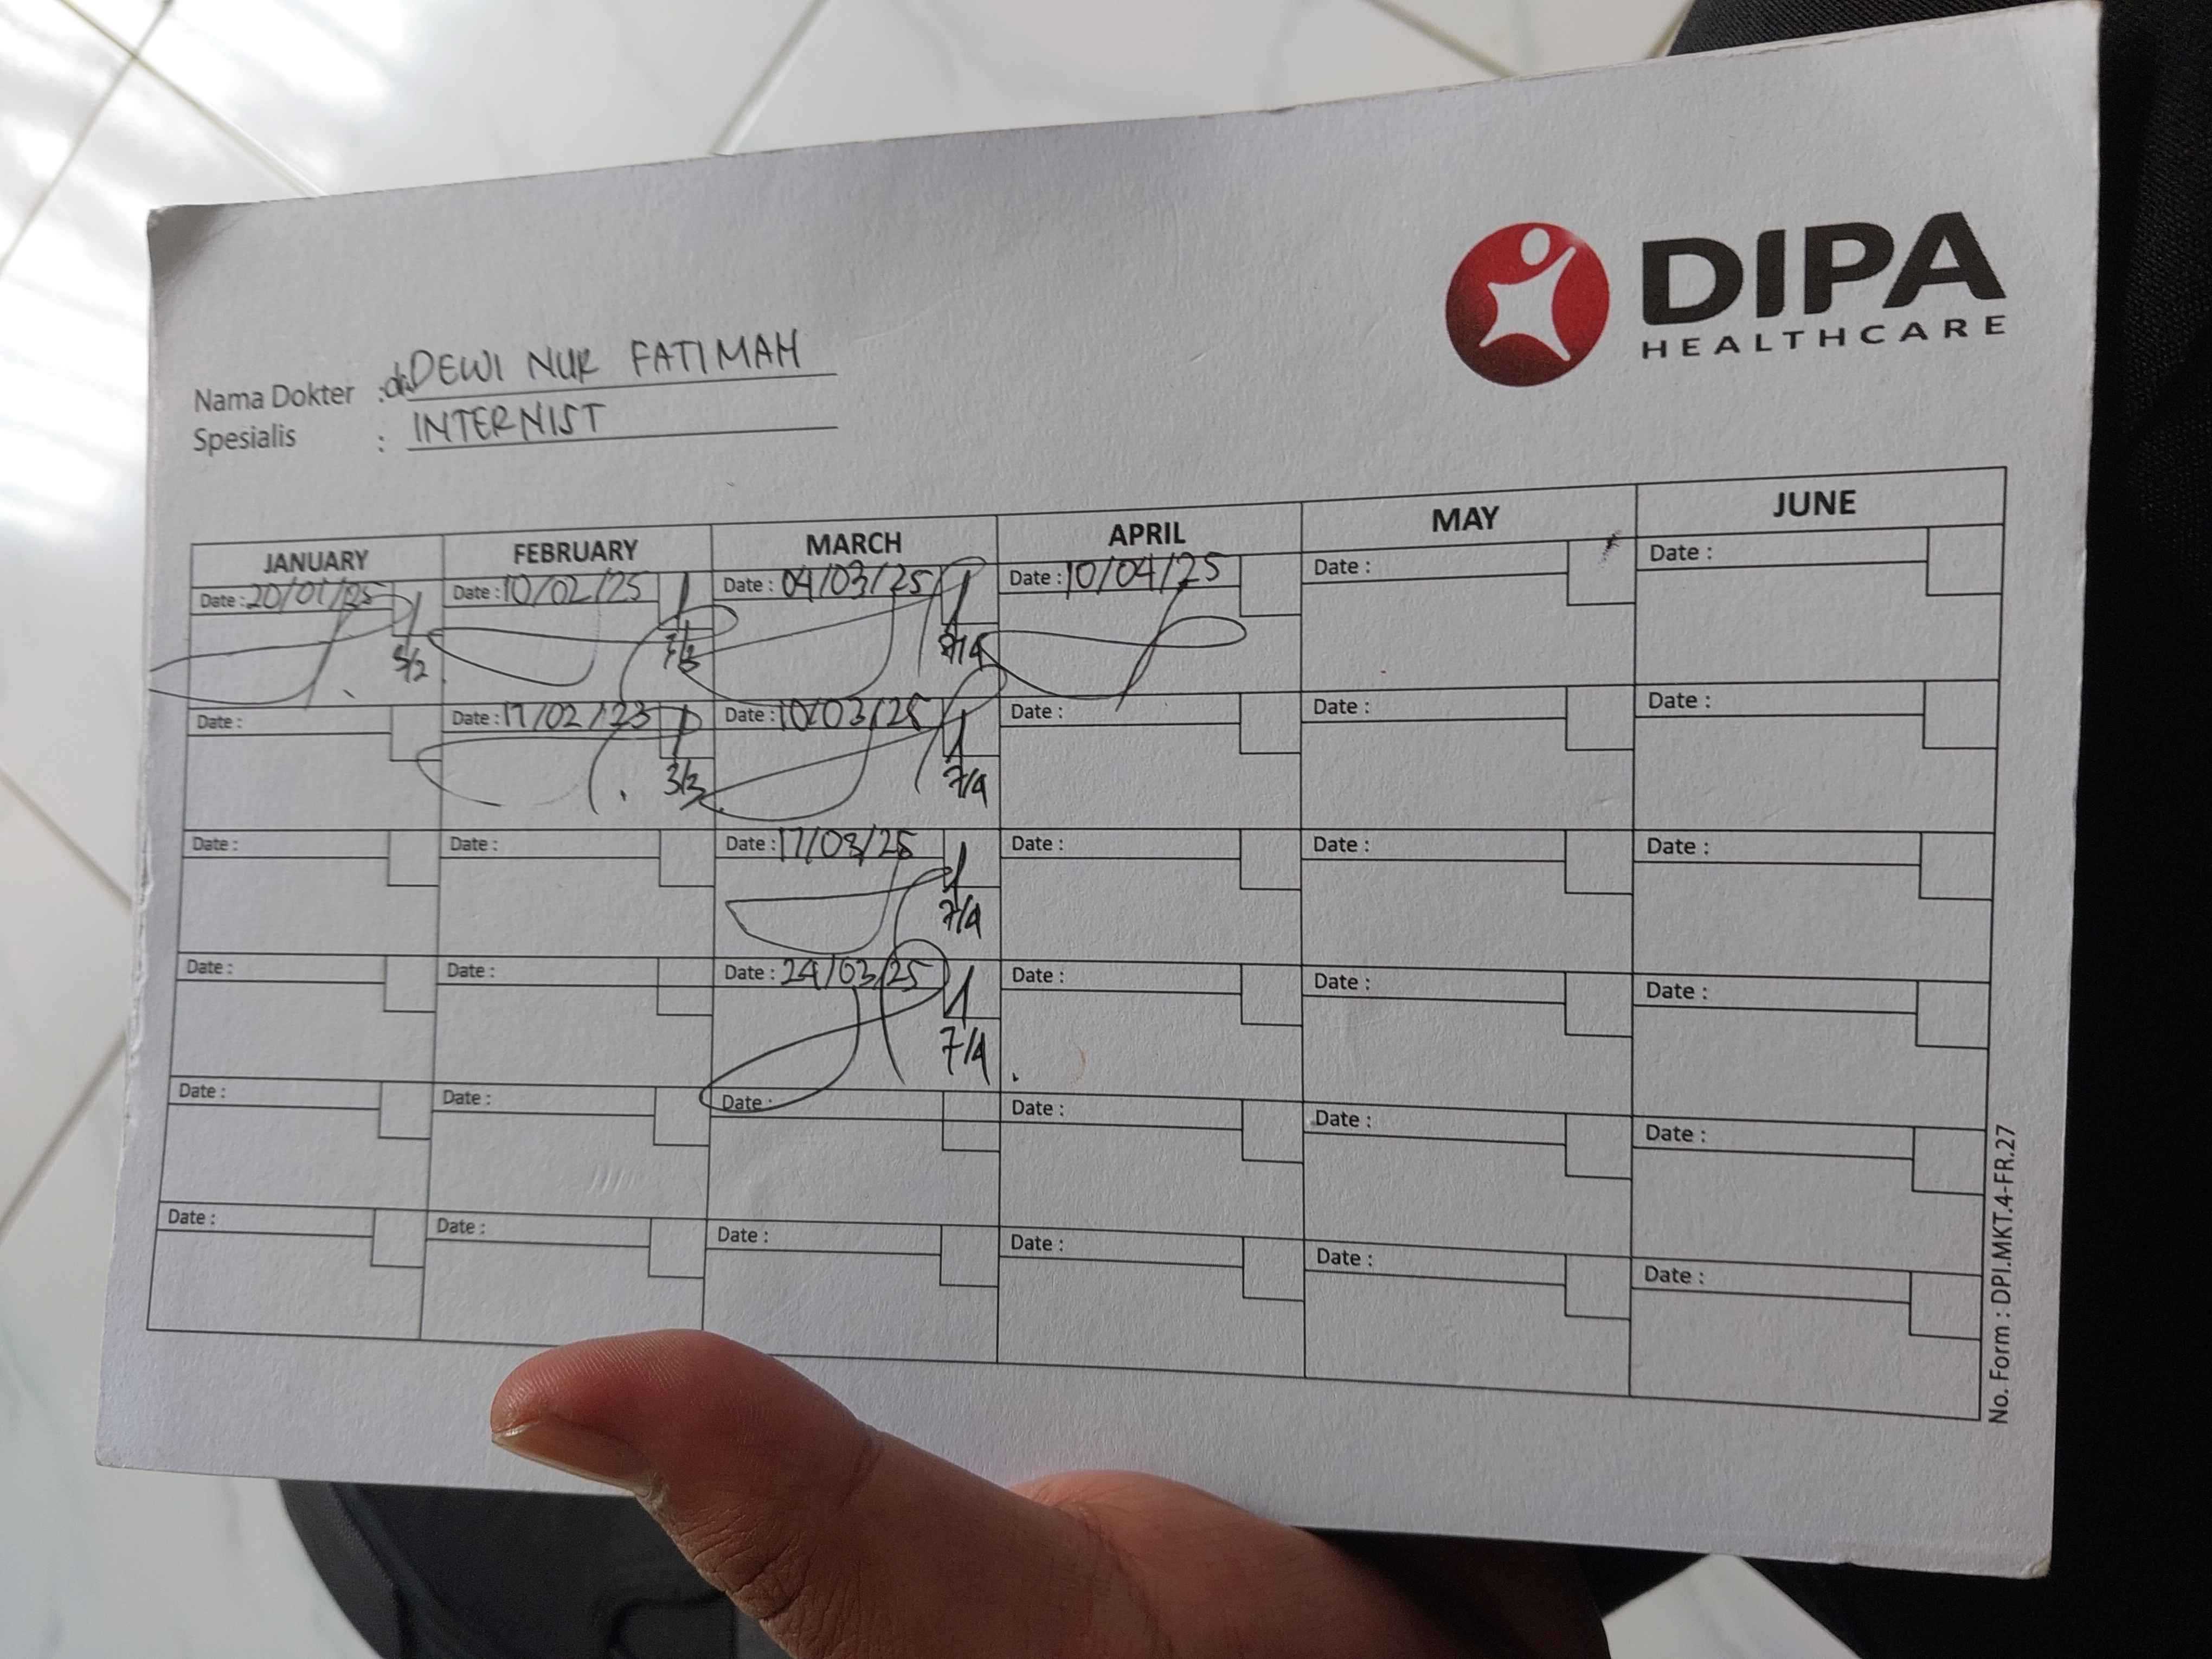 DIPA
HEALTHCARE
Nama Dokter : dr. DEWI NUR FATIMAH
Spesialis : INTERNIST
JANUARY FEBRUARY MARCH APRIL MAY JUNE
Date : 20/01/25 Date : 10/02/25 Date : 04/03/25 Date : 10/04/25 Date : Date :
5/2 7/3 7/4
Date : Date : 17/02/23 Date : 10/03/25 Date : Date : Date :
3/3 7/4
Date : Date : Date : 17/03/25 Date : Date : Date :
7/4
Date : Date : Date : 24/03/25 Date : Date : Date :
7/4
Date : Date : Date : Date : Date : Date :
Date : Date : Date : Date : Date : Date :
No. Form : DPI.MKT.4-FR.27